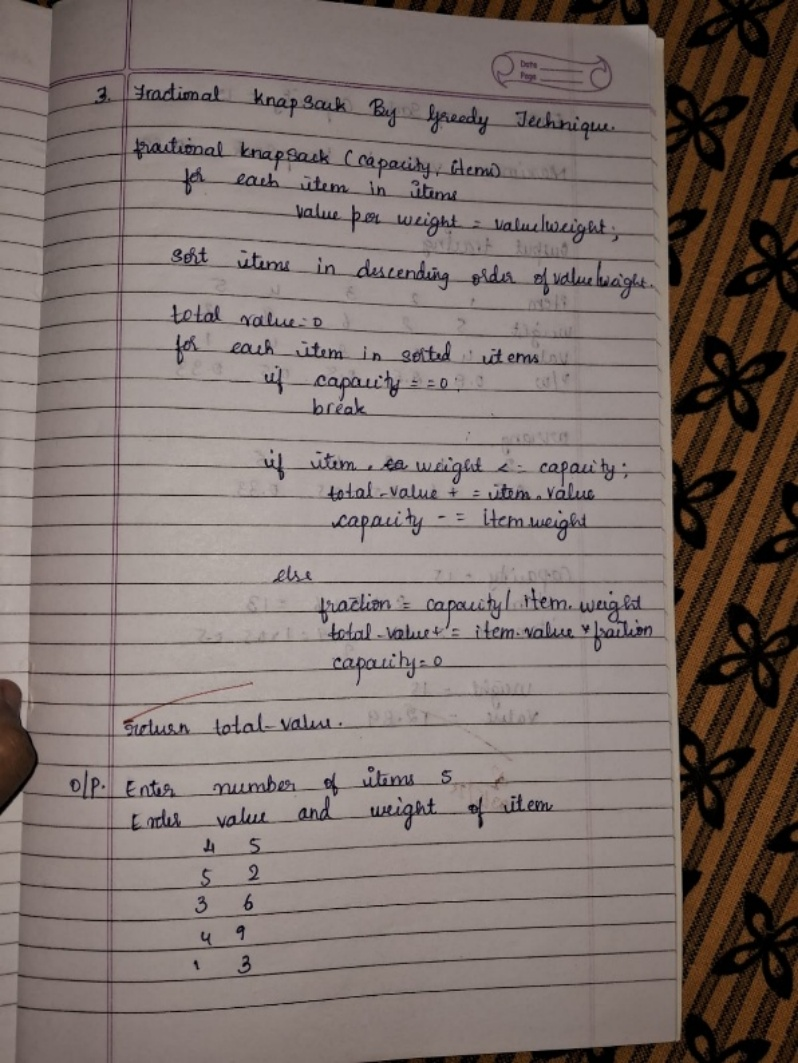 Date
Page
3. Fractional Knapsack By Greedy Technique.
fractional knapsack (capacity, items)
for each item in items
value per weight = value/weight;
sort items in descending order of value/weight.
total value = 0
for each item in sorted items
if capacity = = 0;
break
if item . weight <= capacity;
total-value + = item.value
capacity - = item.weight
else
fraction = capacity / item.weight
total-value + = item.value * fraction
capacity = 0
return total-value.
O/P. Enter number of items 5
Enter value and weight of item
4 5
5 2
3 6
4 9
1 3